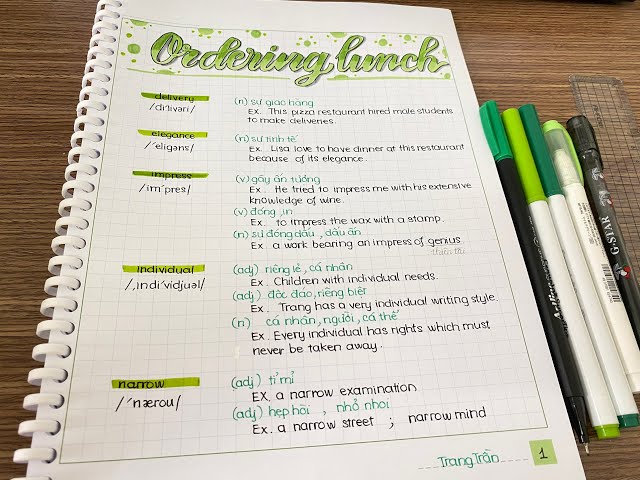 Ordering lunch
delivery
(n) sự giao hàng
/di'livəri/
Ex. This pizza restaurant hired male students
to make deliveries.
elegance
(n) sự tinh tế
/'eligəns/
Ex. Lisa love to have dinner at this restaurant
because of its elegance.
impress
(v) gây ấn tượng
/im'pres/
Ex. He tried to impress me with his extensive
knowledge of wine.
(v) đóng, in
Ex. to impress the wax with a stamp.
(n) sự đóng dấu, dấu ấn
Ex. a work bearing an impress of genius
individual
(adj) riêng lẻ, cá nhân
/,indi'vidjuəl/
Ex. Children with individual needs.
(adj) độc đáo, riêng biệt
Ex. Trang has a very individual writing style.
(n) cá nhân, người, cá thể
Ex. Every individual has rights which must
never be taken away.
narrow
(adj) tỉ mỉ
/'nærou/
EX. a narrow examination
(adj) hẹp hòi, nhỏ nhoi
Ex. a narrow street ; narrow mind
Trang Trần
1
G-STAR